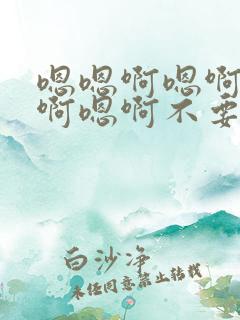 嗯嗯啊嗯啊
啊嗯啊不要
白沙净
未经同意禁止转载